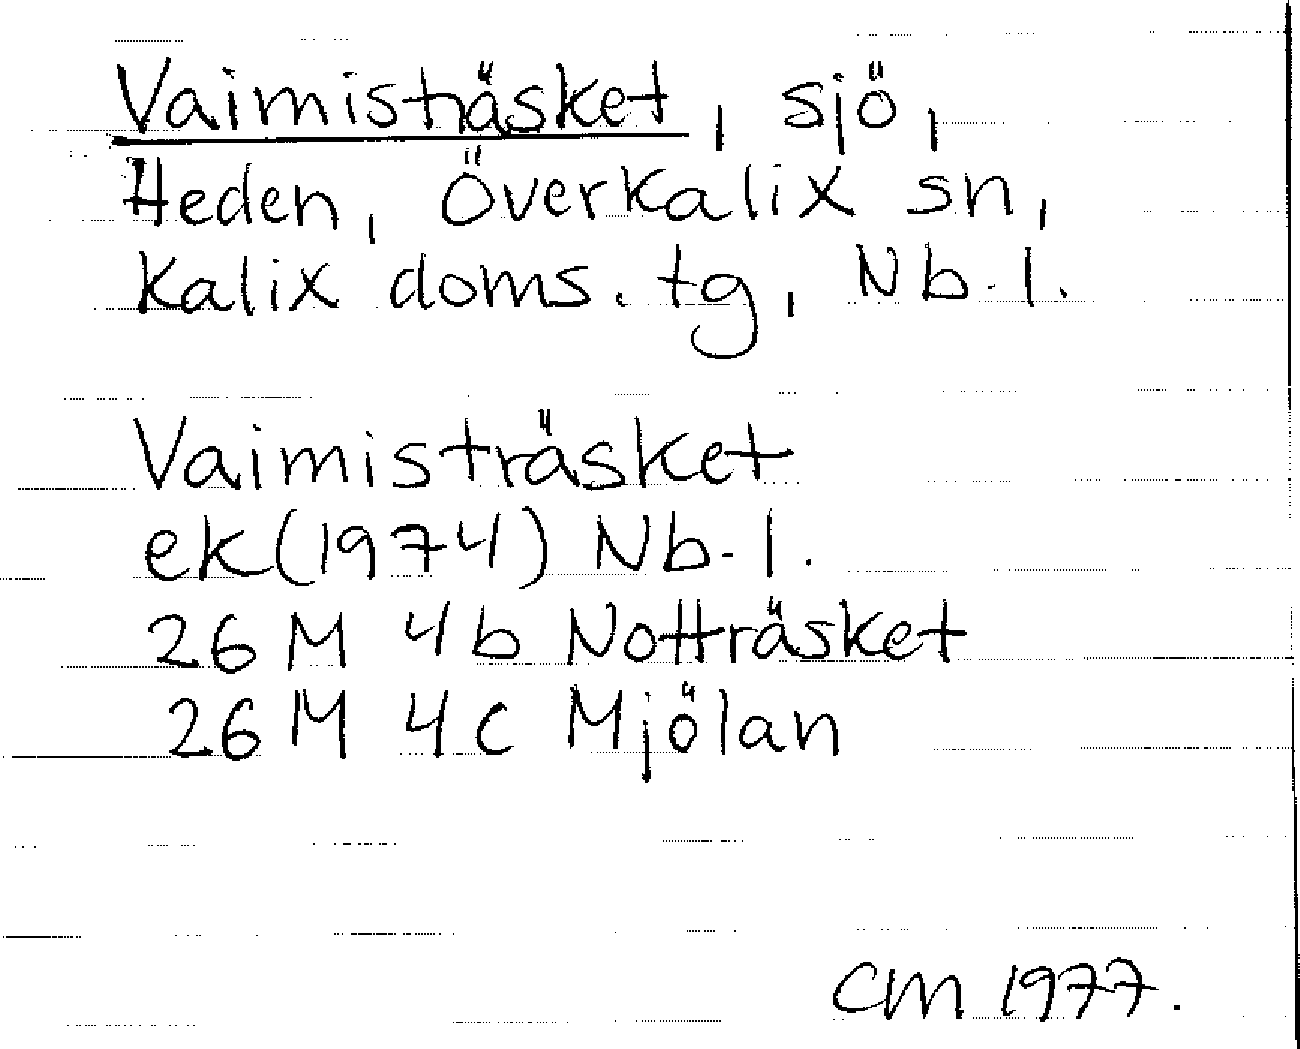 Vaimisträsket, sjö,
Heden, Överkalix sn,
Kalix doms. tg, Nb. l.
Vaimisträsket
ek (1974) Nb. l.
26 M 4b Notträsket
26 M 4c Mjölan
CM 1977.